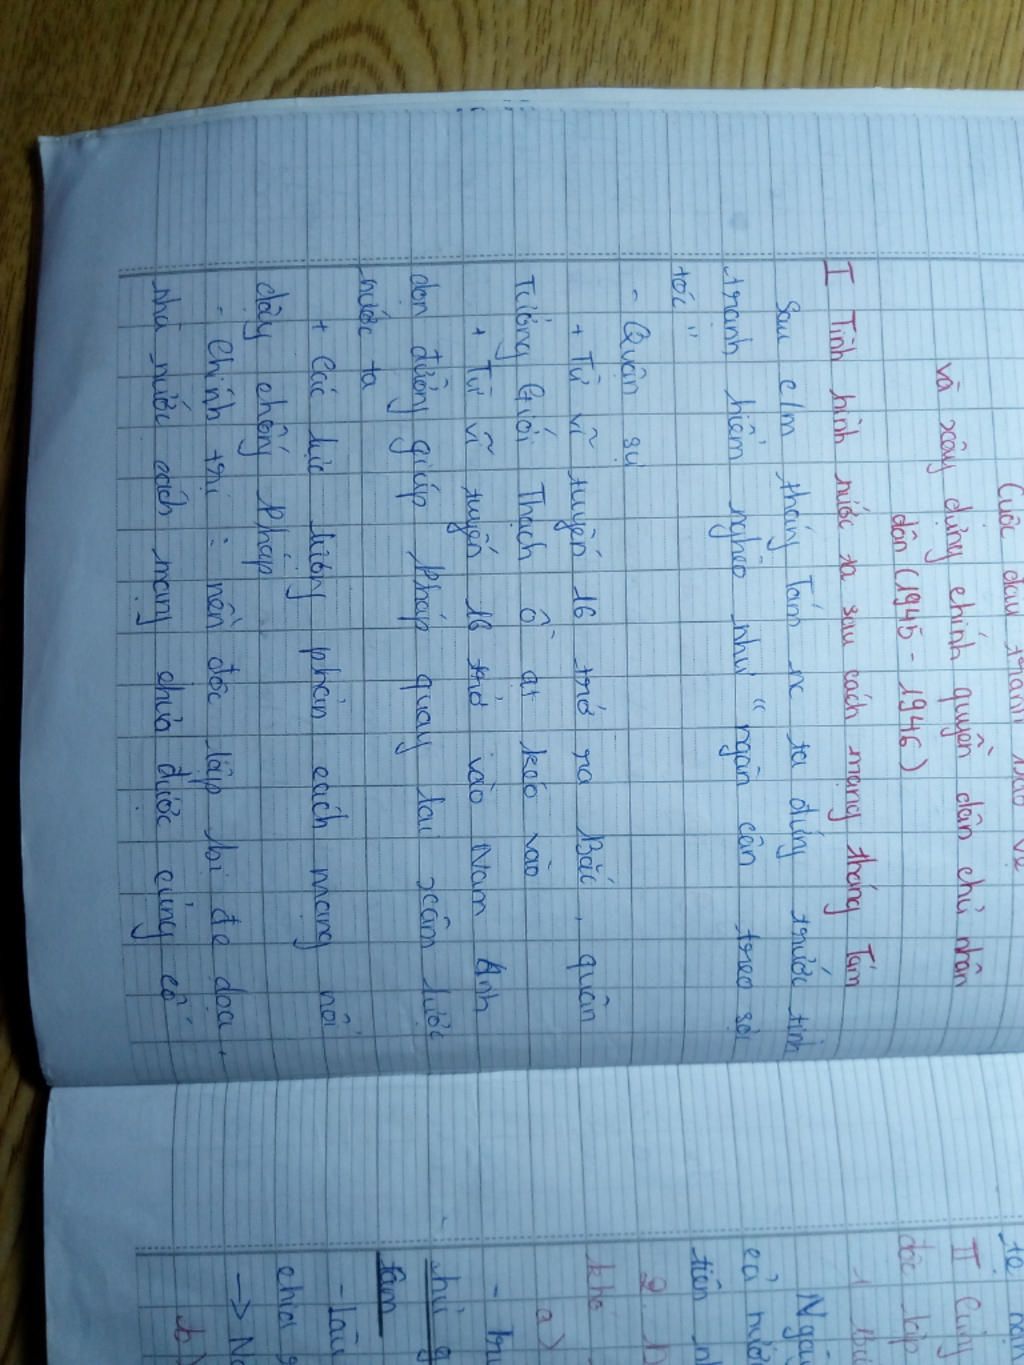 Cuộc đấu tranh bảo vệ
và xây dựng chính quyền dân chủ nhân
dân (1945 - 1946)
I Tình hình nước ta sau cách mạng tháng Tám
Sau c/m tháng Tám nc ta đứng trước tình
trạnh hiểm nghèo như " ngàn cân treo sợi
tóc "
- Quân sự
+ Từ vĩ tuyến 16 trở ra Bắc, quân
Tưởng Giới Thạch ồ ạt kéo vào
+ Từ vĩ tuyến 16 trở vào Nam Anh
dọn đường giúp Pháp quay lại xâm lược
nước ta
+ Các lực lượng phản cách mạng nổi
dậy chống Pháp
- Chính trị : nền độc lập bị đe dọa,
nhà nước cách mạng chưa được củng cố
II Củng
độc lập
1
Ngày
cả nước
tiên
2.
khó
a)
-
thù g
tâm
- Lâu
chia
-> N
b)